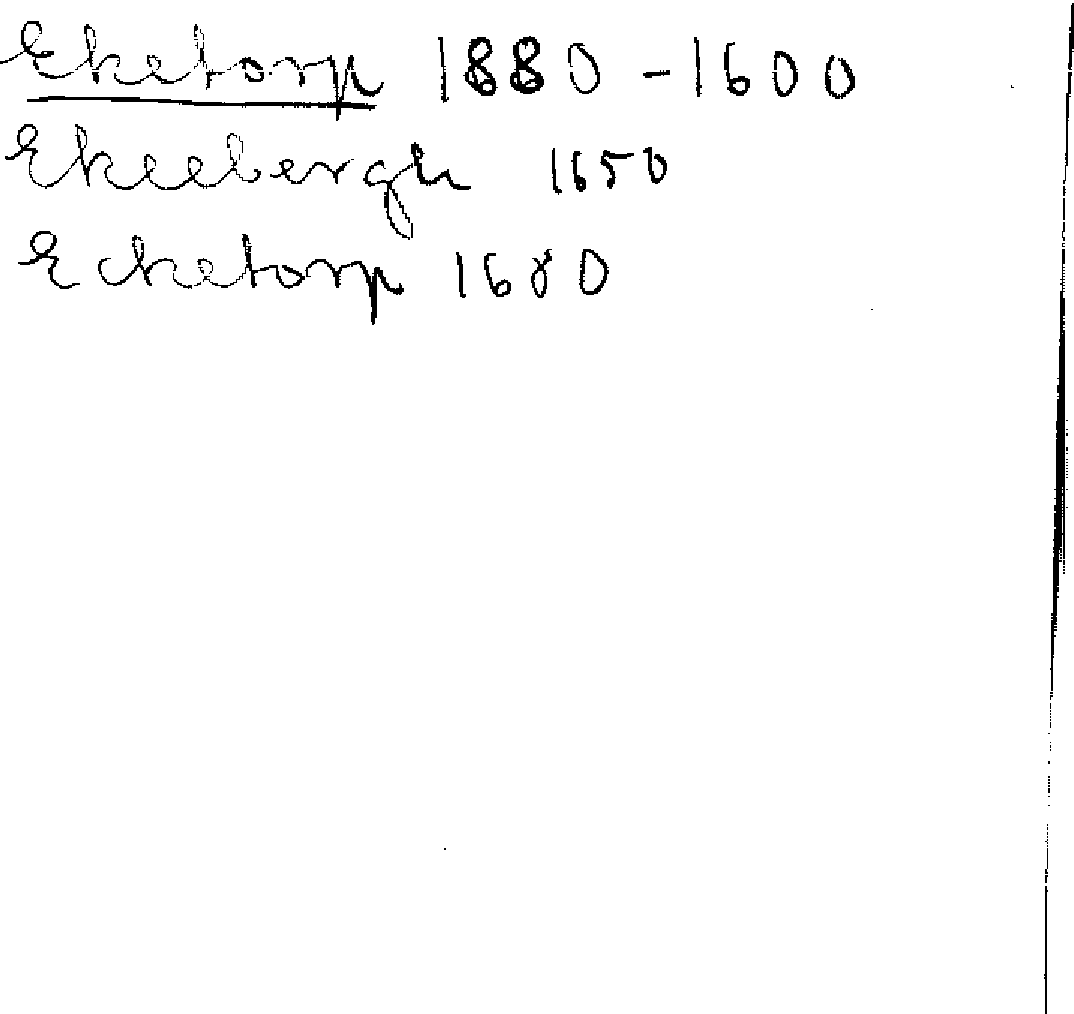 Eketorp 1880 - 1600
Ekeebergh 1650
Ecketorp 1680